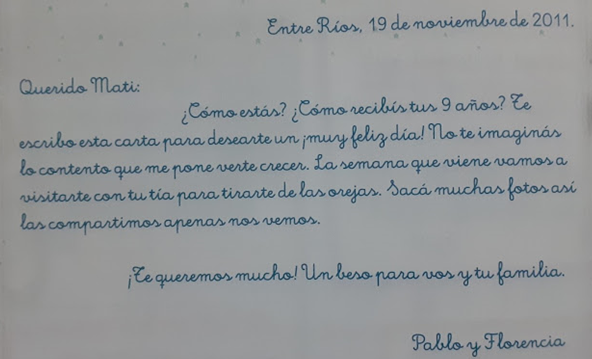 Entre Ríos, 19 de noviembre de 2011.
Querido Mati:
¿Cómo estás? ¿Cómo recibís tus 9 años? Te
escribo esta carta para desearte un ¡muy feliz día! No te imaginás
lo contento que me pone verte crecer. La semana que viene vamos a
visitarte con tu tía para tirarte de las orejas. Sacá muchas fotos así
las compartimos apenas nos vemos.
¡Te queremos mucho! Un beso para vos y tu familia.
Pablo y Florencia